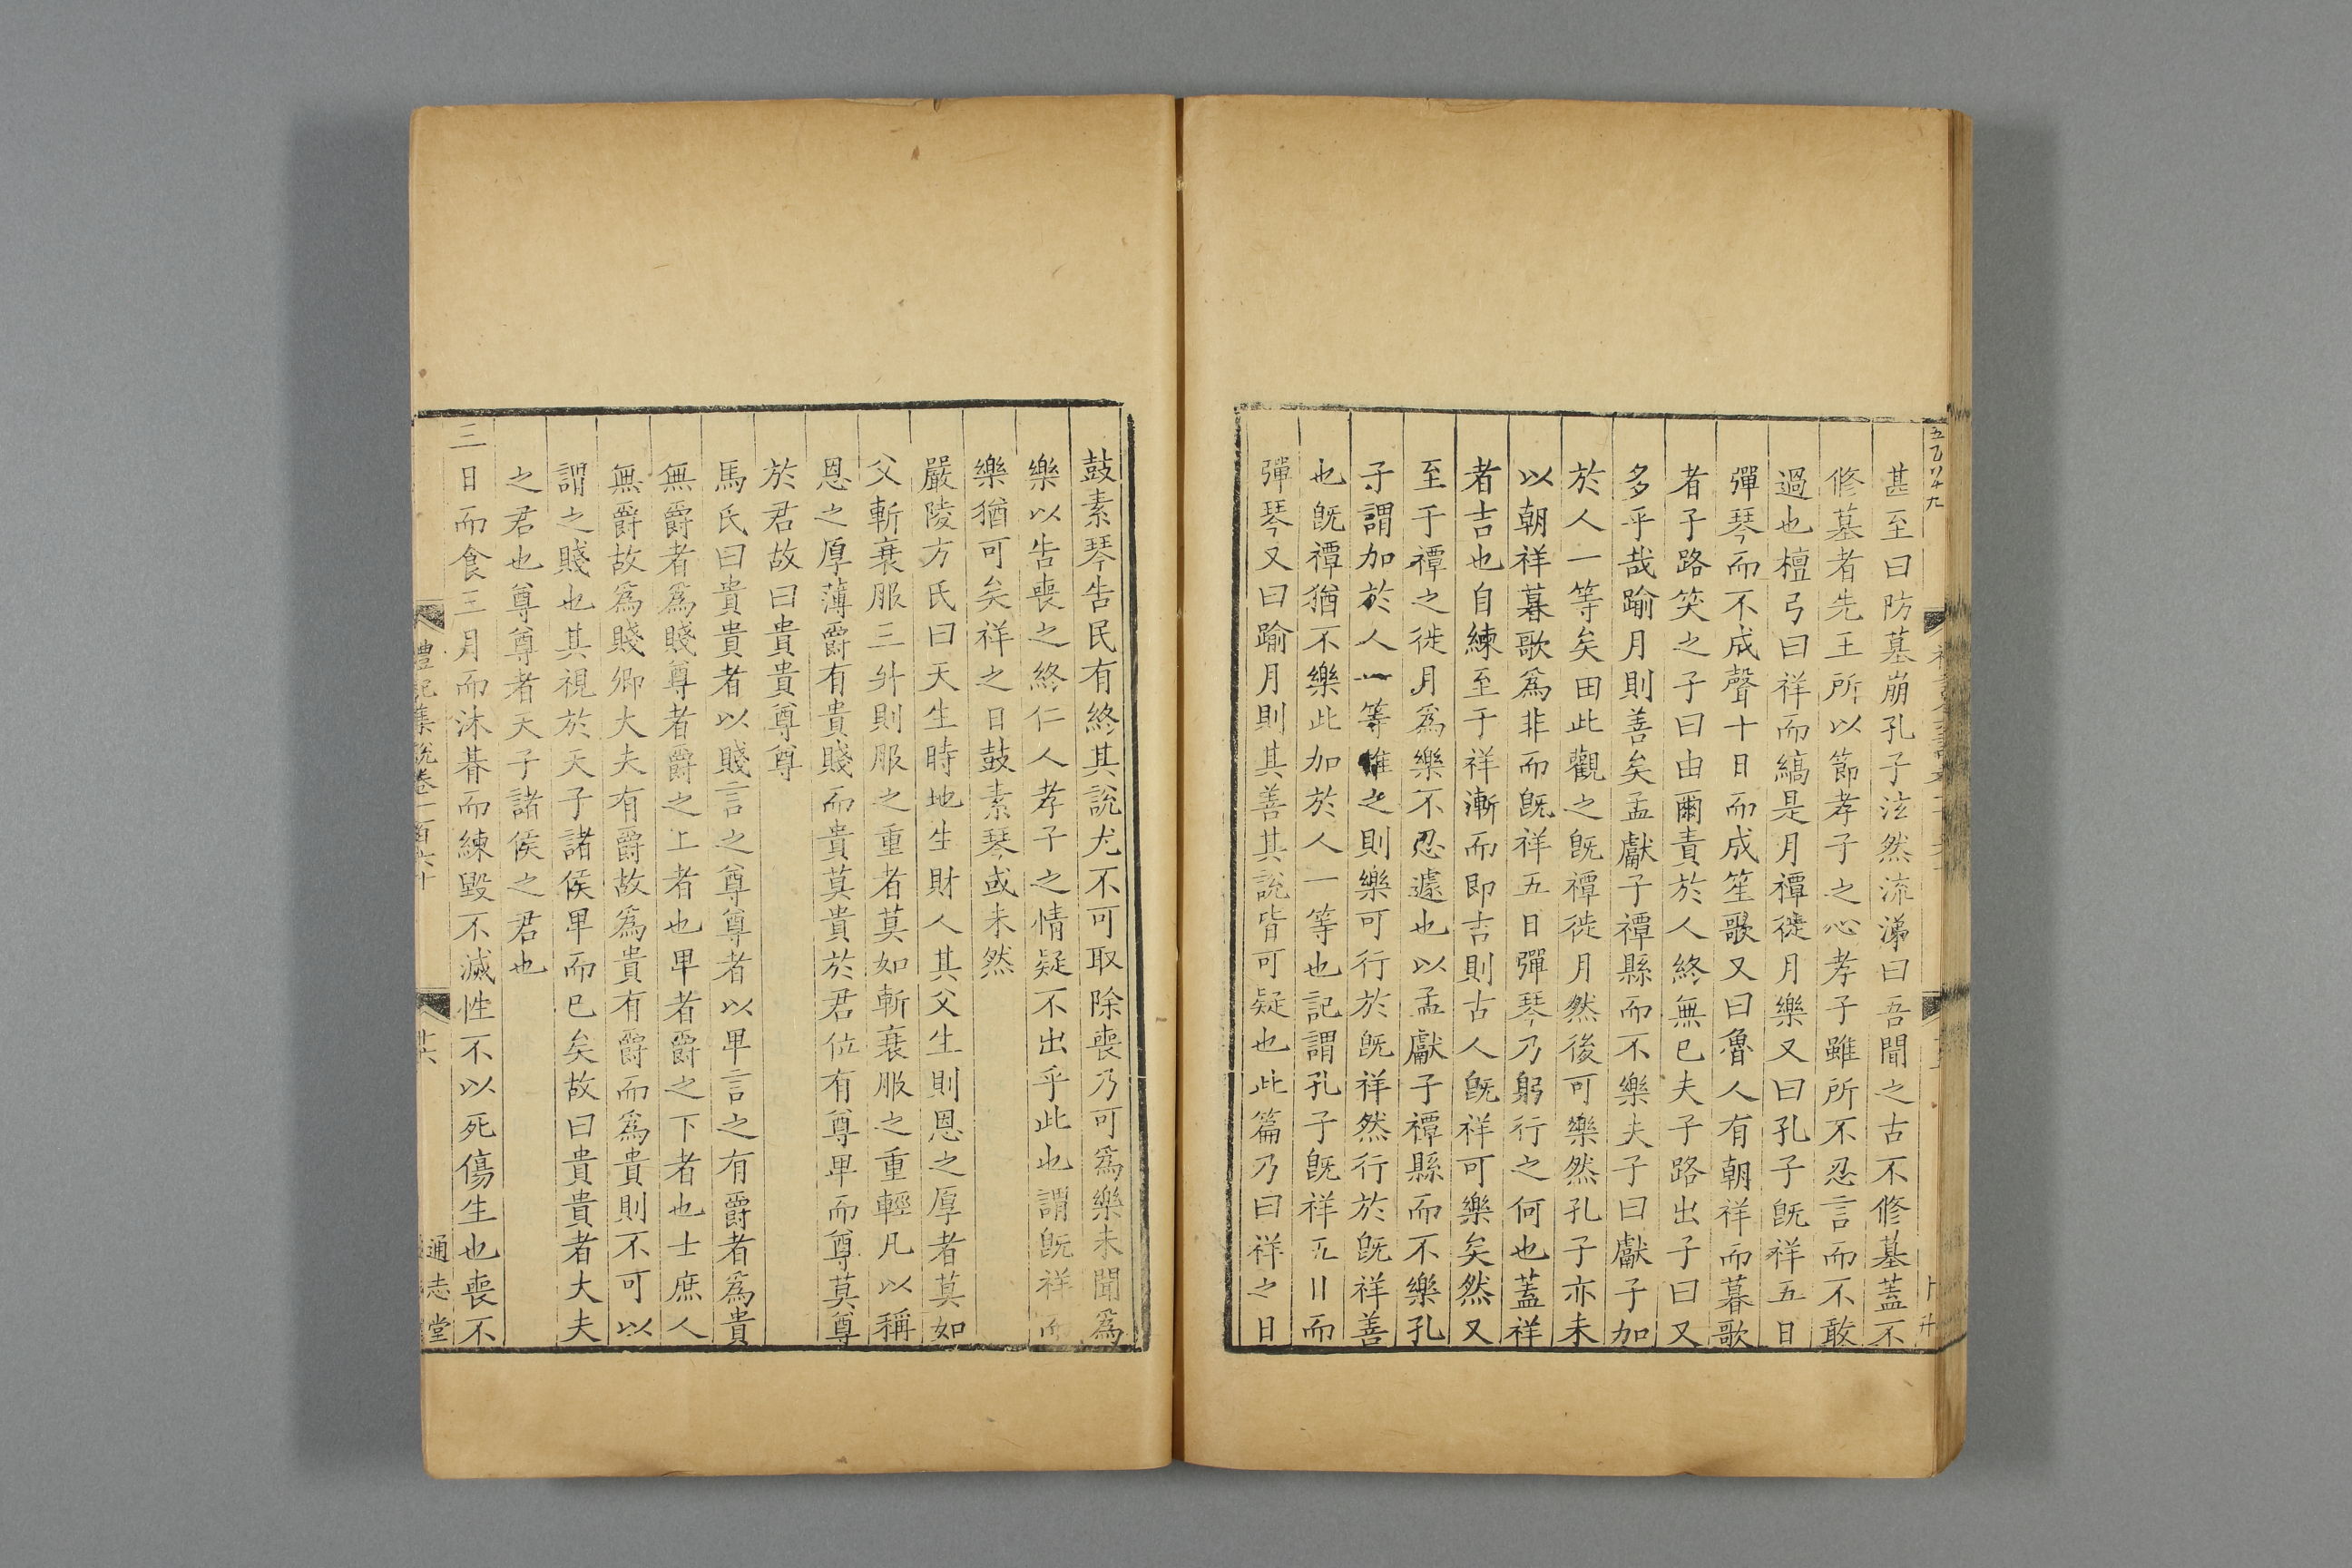 甚至曰防墓崩孔子泫然流涕曰吾聞之古不修墓蓋不
修墓者先王所以節孝子之心孝子雖所不忍言而不敢
過也檀弓曰祥而縞是月禫徙月樂又曰孔子旣祥五日
彈琴而不成聲十日而成笙歌又曰魯人有朝祥而暮歌
者子路笑之子曰由爾責於人終無已夫子路出子曰又
多乎哉踰月則善矣孟獻子禫縣而不樂夫子曰獻子加
於人一等矣由此觀之旣禫徙月然後可樂然孔子亦未
以朝祥暮歌爲非而旣祥五日彈琴乃躬行之何也蓋祥
者吉也自練至于祥漸而即吉則古人旣祥可樂矣然又
至于禫之徙月爲樂不忍遽也以孟獻子禫縣而不樂孔
子謂加於人一等惟之則樂可行於旣祥然行於旣祥善
也旣禫猶不樂此加於人一等也記謂孔子旣祥五日而
彈琴又曰踰月則其善其說皆可疑也此篇乃曰祥之日
鼓素琴告民有終其說尤不可取除喪乃可爲樂未聞爲
樂以告喪之終仁人孝子之情疑不出乎此也謂旣祥而
樂猶可矣祥之日鼓素琴或未然
嚴陵方氏曰天生時地生財人其父生則恩之厚者莫如
父斬衰服三升則服之重者莫如斬衰服之重輕凡以稱
恩之厚薄爵有貴賤而貴莫貴於君位有尊卑而尊莫尊
於君故曰貴貴尊尊
馬氏曰貴貴者以賤言之尊尊者以卑言之有爵者爲貴
無爵者爲賤尊者爵之上者也卑者爵之下者也士庶人
無爵故爲賤卿大夫有爵故爲貴有爵而爲貴則不可以
謂之賤也其視於天子諸侯卑而已矣故曰貴貴者大夫
之君也尊尊者天子諸侯之君也
三日而食三月而沐朞而練毀不滅性不以死傷生也喪不
禮記集說卷一百六十
廿六
通志堂